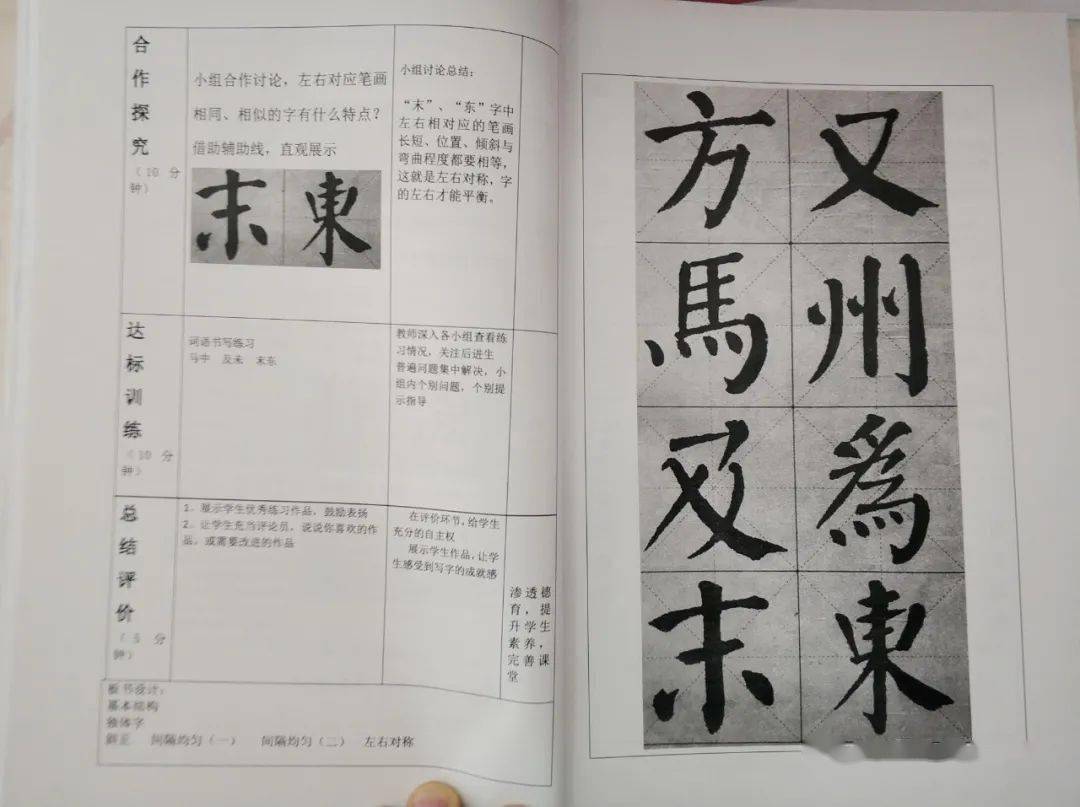 合
作
探
究
（10 分
钟）
小组合作讨论，左右对应笔画
相同、相似的字有什么特点？
借助辅助线，直观展示
末 東
小组讨论总结：
“末”、“东”字中
左右相对应的笔画
长短、位置、倾斜与
弯曲程度都要相等，
这就是左右对称，字
的左右才能平衡。
达
标
训
练
（10 分
钟）
词语书写练习
马中 及未 末东
教师深入各小组查看练
习情况，关注后进生
普遍问题集中解决，小
组内个别问题，个别提
示指导
总
结
评
价
（5 分
钟）
1、展示学生优秀练习作品，鼓励表扬
2、让学生充当评论员，说说你喜欢的作
品，或需要改进的作品
在评价环节，给学生
充分的自主权
展示学生作品，让学
生感受到写字的成就感
渗透德
育，提
升学生
素养，
完善课
堂
板书设计：
基本结构
独体字
斜正 间隔均匀（一） 间隔均匀（二） 左右对称
方 又
馬 州
及 為
末 東